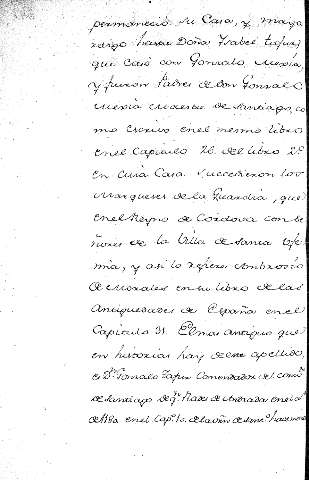 permaneció su Casa, y mayo
razgo hasta Doña Ysabel
que casó con Gonzalo Mexia
y fueron Padres de don Gonzalo
Mexia Maestre de Santiago, co
mo escrivo en el mismo libro
en el Capitulo 26 del libro 2º
en cuia Casa sucedieron los
Marqueses de la Guardia, que
en el Reyno de Cordova con Se
ñores de la Villa de Santa Eufe
mia, y asi lo refiere Ambrosio
de Morales en su libro de las
Antiguedades de España en el
Capitulo 31. El mas antiguo que
en historias hay de este apellido,
es Dn. Gonzalo Comendador del
de Santiago de en el
de en el Cap.